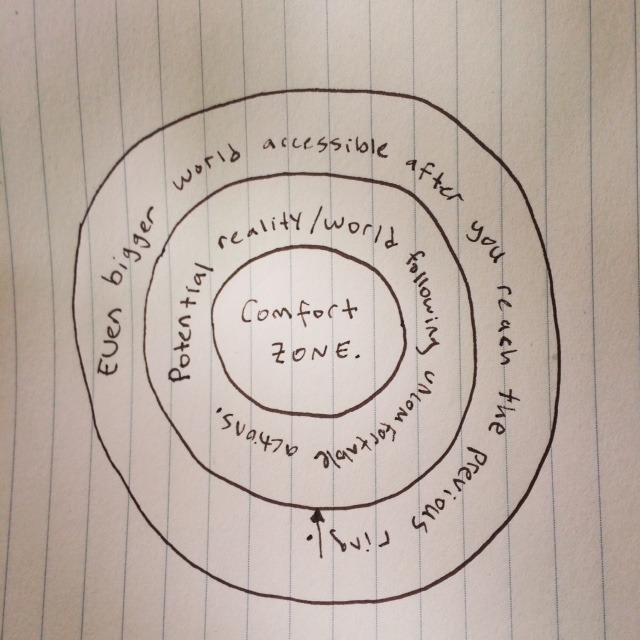 Comfort
ZONE.
Potential reality/world following uncomfortable actions.
Even bigger world accessible after you reach the previous ring.